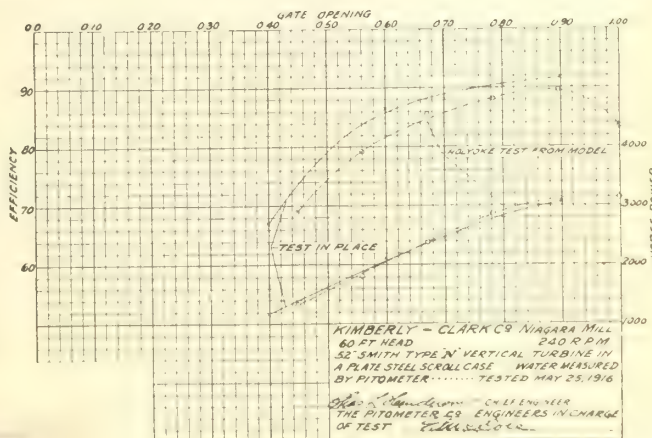 GATE OPENING
0.0 0.10 0.20 0.30 0.40 0.50 0.60 0.70 0.80 0.90 1.00
90
80
70
60
EFFICIENCY
4000
3000
2000
1000
HORSE POWER
HOLYOKE TEST FROM MODEL
TEST IN PLACE
KIMBERLY - CLARK CO NIAGARA MILL
60 FT HEAD 240 R P M
52" SMITH TYPE "N" VERTICAL TURBINE IN
A PLATE STEEL SCROLL CASE WATER MEASURED
BY PITOMETER ········ TESTED MAY 25, 1916
CHIEF ENGINEER
THE PITOMETER CO ENGINEERS IN CHARGE
OF TEST